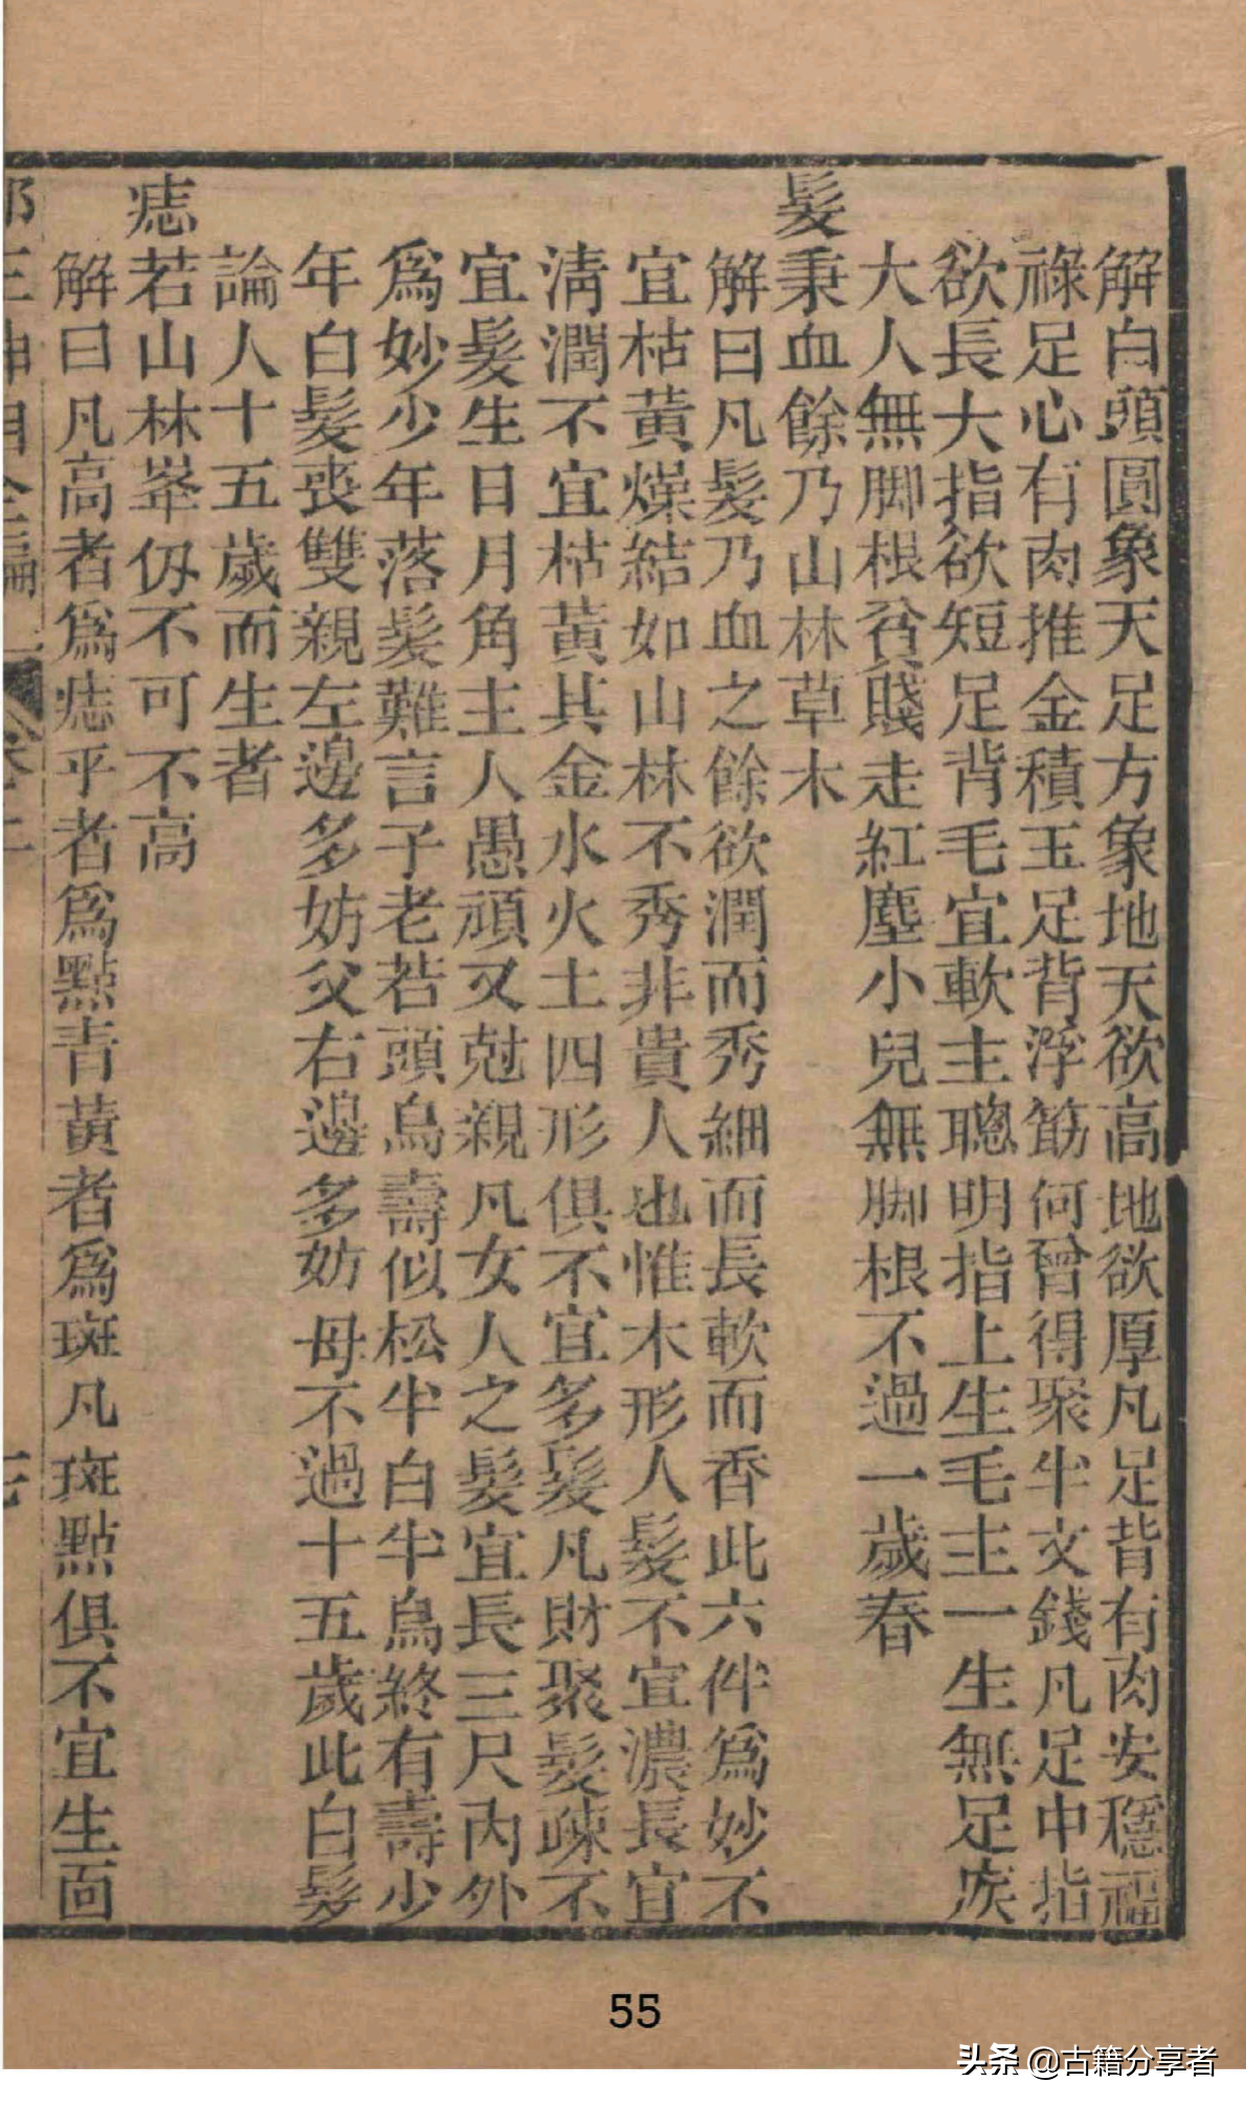 解曰頭圓象天足方象地天欲高地欲厚凡足背有肉安穩福
祿足心有肉推金積玉足背浮筋何曾得聚半文錢凡足中指
欲長大指欲短足背毛宜軟主聰明指上生毛主一生無足疾
大人無脚根貧賤走紅塵小兒無脚根不過一歲春
髮秉血餘乃山林草木
解曰凡髮乃血之餘欲潤而秀細而長軟而香此六件為妙不
宜枯黃燥結如山林不秀非貴人也惟木形人髮不宜濃長宜
淸潤不宜枯黃其金水火土四形俱不宜多髮凡財聚髮疎不
宜髮生日月角主人愚頑又尅親凡女人之髮宜長三尺內外
為妙少年落髮難言子老若頭烏壽似松半白半烏終有壽少
年白髮喪雙親左邊多妨父右邊多妨母不過十五歲此白髮
論人十五歲而生者
痣若山林峯仭不可不高
解曰凡高者爲痣平者爲點靑黃者爲斑凡斑點俱不宜生面
柳莊神相全編
卷二
55
头条 @古籍分享者